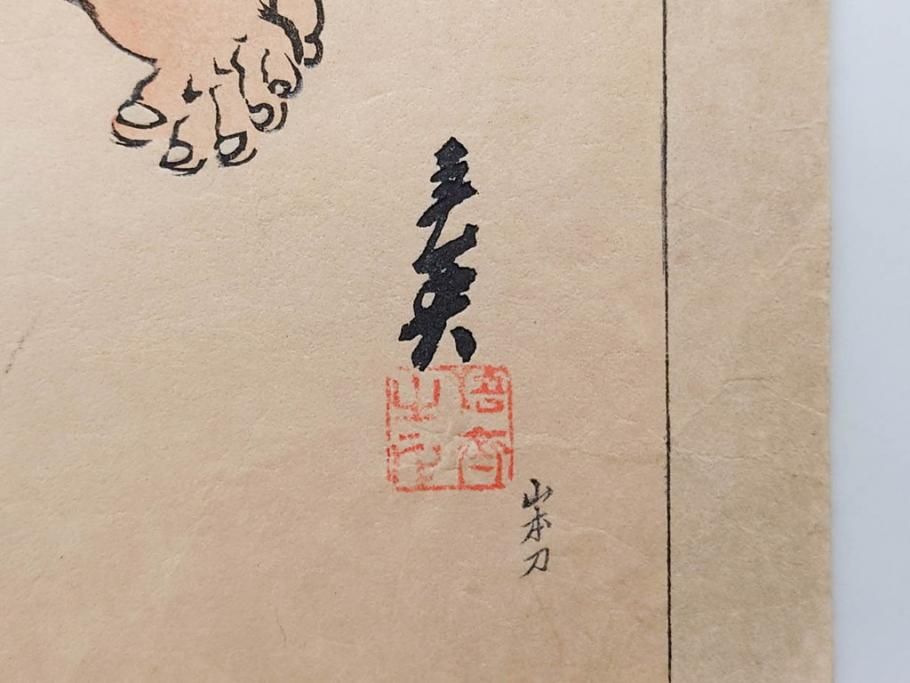 年英
山本刀